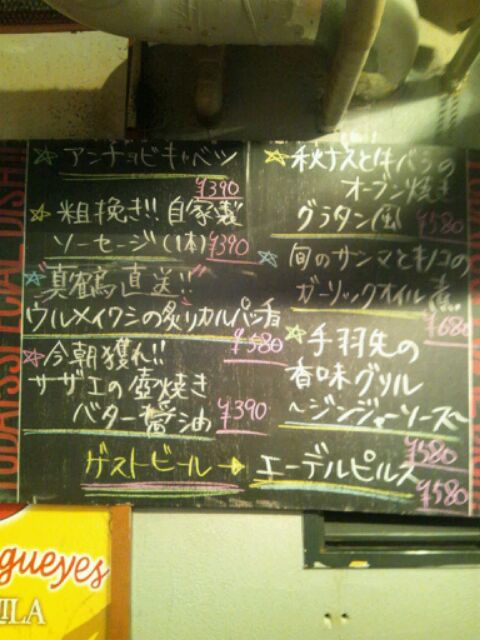 アンチョビキャベツ
¥390
粗挽き!! 自家製
ソーセージ(1本) ¥390
"真鶴直送!!"
ウルメイワシの炙りカルパッチョ
¥580
今朝獲れ!!
サザエの壺焼き
バター醤油 ¥390
秋ナスと牛バラの
オーブン焼き
グラタン風 ¥580
旬のサンマとキノコの
ガーリックオイル煮
¥680
手羽先の
香味グリル
～ジンジャーソース～
¥580
ゲストビール→エーデルピルス
¥580
TODAY'S SPECIAL DISH
gueyes
ILA